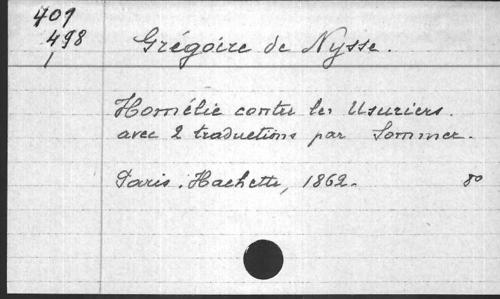 409
498
1
Grégoire de Nysse.
Homélie contre les Usuriers.
avec 2 traductions par Sommer.
Paris. Hachette, 1862. 80